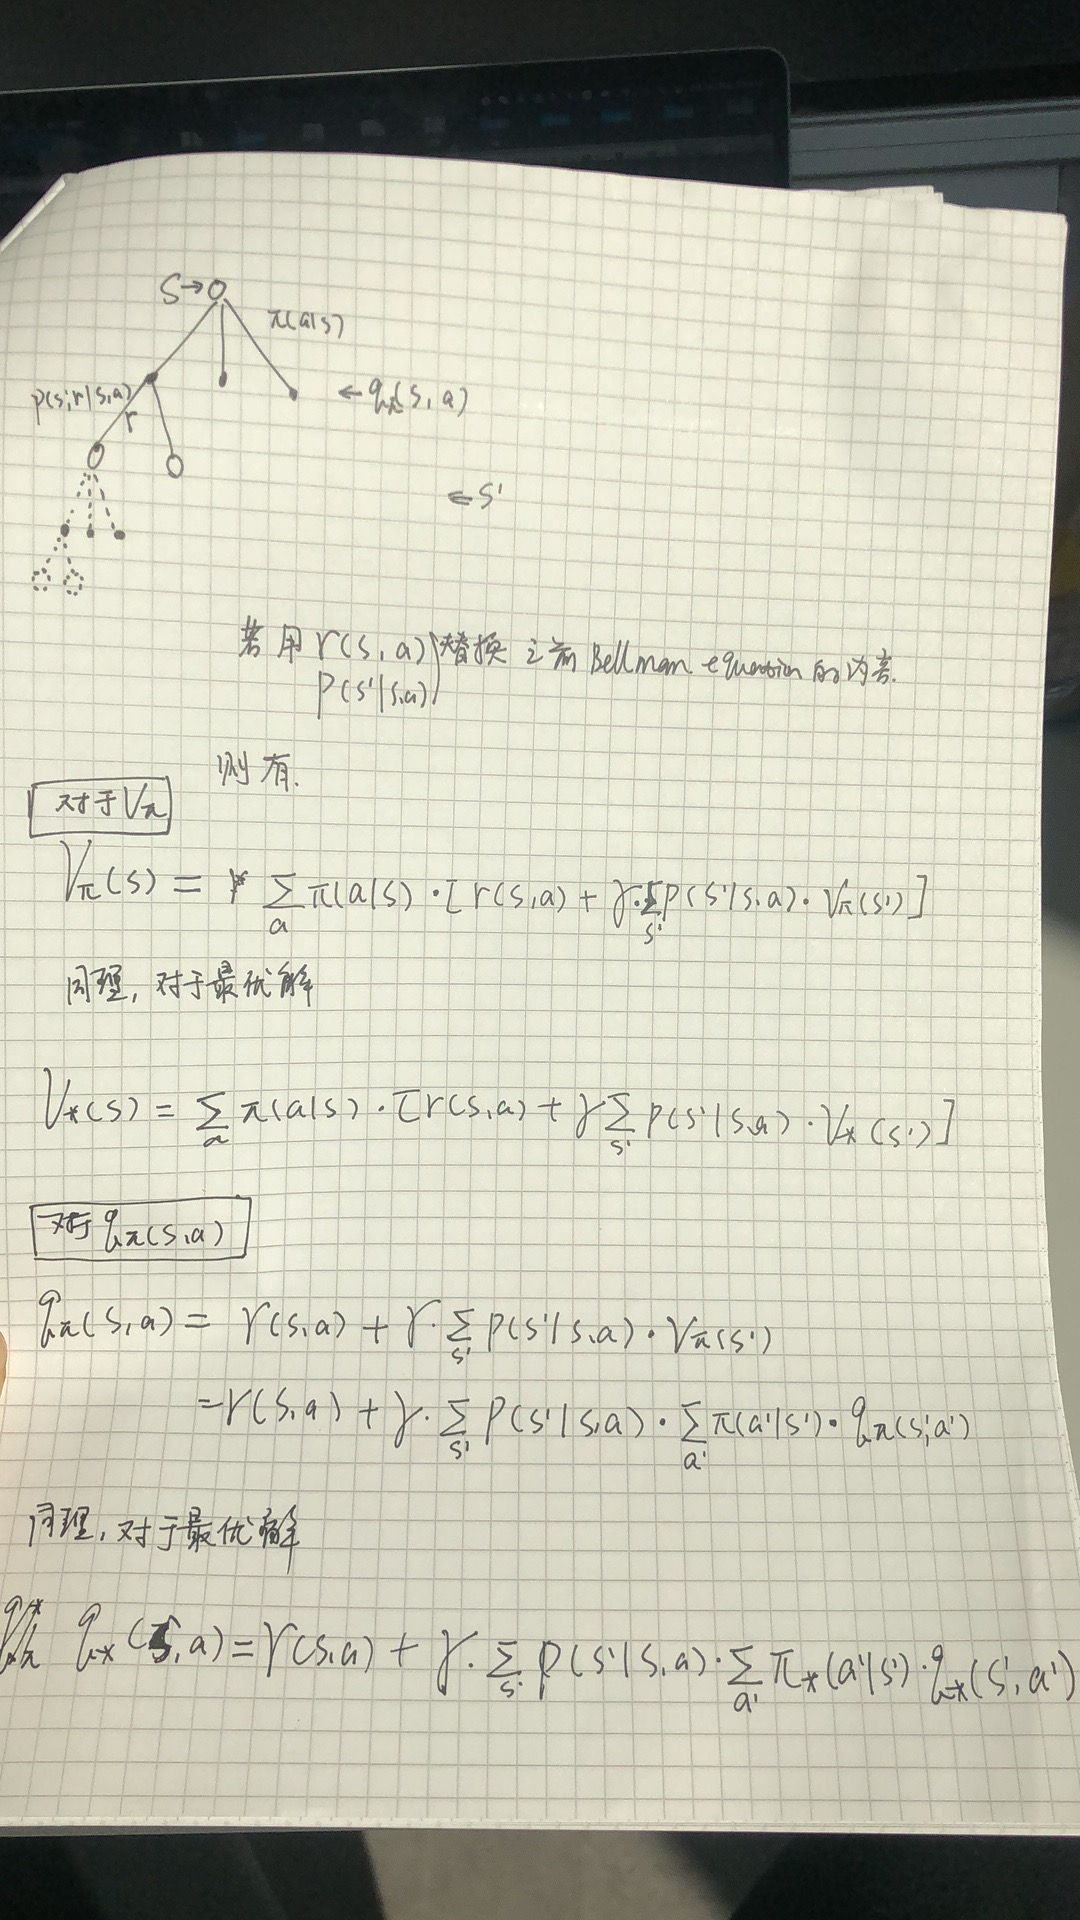 S→
π(a|s)
p(s',r|s,a)
r
←qπ(s,a)
←s'
若用r(s,a) 替换之前Bellman equation的内容.
p(s'|s,a)
则有.
对于Vπ
Vπ(s) = Σ_a π(a|s)·[r(s,a) + γ·Σ_s' p(s'|s,a)·Vπ(s')]
同理,对于最优解
V*(s) = Σ_a π(a|s)·[r(s,a) + γΣ_s' p(s'|s,a)·V*(s')]
对于qπ(s,a)
qπ(s,a) = r(s,a) + γ·Σ_s' p(s'|s,a)·Vπ(s')
=r(s,a) + γ·Σ_s' p(s'|s,a)·Σ_a' π(a'|s')·qπ(s',a')
同理,对于最优解
q*(s,a) = r(s,a) + γ·Σ_s' p(s'|s,a)·Σ_a' π*(a'|s')·q*(s',a')